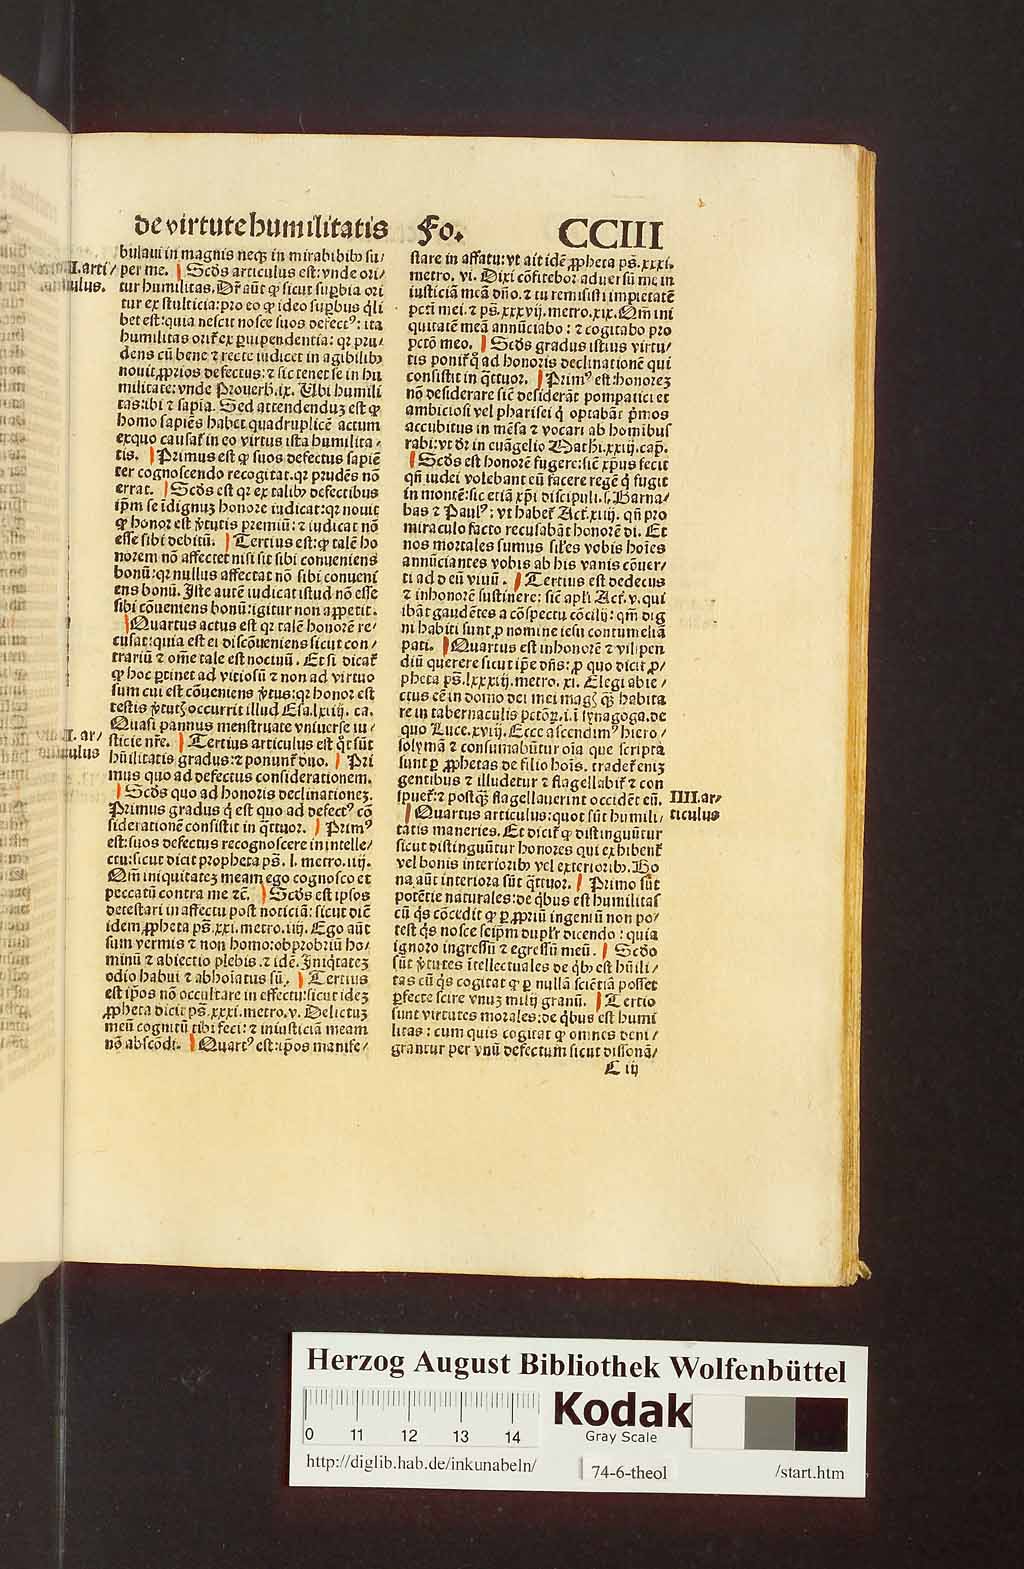 de virtute humilitatis Fo. CCIII
bulaui in magnis neqꝫ in mirabibibꝰ su/
per me. Scd̄s articulus est: vnde ori/
tur humilitas. Dr̄ aūt ꝙ sicut suꝑbia ori
tur ex stulticia: pro eo ꝙ ideo suꝑbus q̄li
bet est: quia nescit nosce suos defectꝰ: ita
humilitas orit̄ ex ꝓuipendentia: qꝛ pru/
dens cū bene ⁊ recte iudicet in agibilibꝰ
nouit ꝓprios defectus: ⁊ sic tenet se in hu
militate: vnde Prouerb̄. ix. Vbi humili
tas: ibi ⁊ sapīa. Sed attendenduꝫ est ꝙ
homo sapiēs habet quadruplicē actum
ex quo causat̄ in eo virtus ista humilita/
tis. Primus est ꝙ suos defectus sapiē
ter cognoscendo recogitat. qꝛ prudēs nō
errat. Scd̄s est qꝛ ex talibꝰ defectibus
ip̄m se īdignuꝫ honore iudicat: qꝛ nouit
ꝙ honor est v̄tutis premiū: ⁊ iudicat nō
esse sibi debitū. Tertius est: ꝙ talē ho
norem nō affectet nisi sit sibi conueniens
bonū: qꝛ nullus affectat nō sibi conueni
ens bonū. Iste autē iudicat istud nō esse
sibi cōueniens bonū: igitur non appetit.
Quartus actus est qꝛ talē honorē re/
cusat: quia est ei discōueniens sicut con/
trariū ⁊ om̄e tale est nociuū. Et si dicat̄
ꝙ hoc ꝑtinet ad vitiosū ⁊ non ad virtuo
sum cui est cōueniens v̄tus: qꝛ honor est
testis v̄tutꝭ occurrit illud Esa. lxiiij. ca.
Quasi pannus menstruate vniuerse iu/
sticie nr̄e. Tertius articulus est q̊t sūt
hūilitatis gradus: ⁊ ponunt̄ duo. Pri
mus quo ad defectus considerationem.
Scd̄s quo ad honoris declinationeꝫ.
Primus gradus q̄ est quo ad defectꝰ cō
siderationē consistit in q̄ttuor. Primꝰ
est: suos defectus recognoscere in intelle/
ctu: sicut dicit propheta ps̄. l. metro. iiij.
Qm̄ iniquitateꝫ meam ego cognosco et
peccatū contra me ⁊c̄. Scd̄s est ipsos
detestari in affectu post noticiā: sicut dic̄
idem ꝓpheta ps̄. xxi. metro. iiij. Ego aūt
sum vermis ⁊ non homo: obprobriū ho/
minū ⁊ abiectio plebis. ⁊ idē. Iniq̄tateꝫ
odio habui ⁊ abhoīatus sū. Tertius
est ip̄os nō occultare in effectu: sicut ideꝫ
ꝓpheta dicit ps̄. xxxi. metro. v. Delictuꝫ
meū cognitū tibi feci: ⁊ iniusticiā meam
nō abscōdi. Quartꝰ est: ip̄os manife/
stare in affatu: vt ait idē ꝓpheta ps̄. xxxi.
metro. vi. Dixi cōfitebor aduersū me in
iusticiā meā dn̄o. ⁊ tu remisisti impietatē
pctī mei. ⁊ ps̄. xxxvij. metro. xix. Qm̄ ini
quitatē meā annūciabo: ⁊ cogitabo pro
pctō meo. Scd̄s gradus istius virtu/
tis ponit̄ q̊ ad honoris declinationē qui
consistit in q̄ttuor. Primꝰ est: honoreꝫ
nō desiderare sic̄ desiderāt pompatici et
ambiciosi vel pharisei q̄ optabāt p̄mos
accubitus in mēsa ⁊ vocari ab homībus
rabi: vt dr̄ in euāgelio Math̄. xxiij. cap̄.
Scd̄s est honorē fugere: sic̄ xp̄us fecit
qn̄ iudei volebant eū facere regē q̄ fugit
in montē: sic etiā xp̄i discipuli. s. Barna/
bas ⁊ Paulꝰ: vt habet̄ Act̄. xiiij. qn̄ pro
miraculo facto recusabāt honorē di. Et
nos mortales sumus sil̄es vobis hoīes
annūciantes vobis ab his vanis cōuer/
ti ad deū viuū. Tertius est dedecus
⁊ inhonorē sustinere: sic̄ apl̄i Act̄. v. qui
ibāt gaudētes a cōspectu cōcilij: qm̄ dig
ni habiti sunt ꝓ nomine iesu contumeliā
pati. Quartus est inhonorē ⁊ vilipen
diū querere sicut ip̄e dn̄s: ꝓ quo dicit ꝓ/
pheta ps̄. lxxxiij. metro. xi. Elegi abie/
ctus eē in domo dei mei magꝭ qꝫ habita
re in tabernaculis pctōꝝ. i. ī synagoga. de
quo Luce. xviij. Ecce ascendimꝰ hiero/
solymā ⁊ consumabūtur oīa que scripta
sunt ꝑ ꝓphetas de filio hoīs. tradet̄ eniꝫ
gentibus ⁊ illudetur ⁊ flagellabit̄ ⁊ con
spuet̄: ⁊ postqꝫ flagellauerint occidēt eū.
Quartus articulus: quot sūt humili/
tatis maneries. Et dicit̄ ꝙ distinguūtur
sicut distinguūtur honores qui exhibent̄
vel bonis interioribꝰ vel exterioribꝰ. Bo
na aūt interiora sūt q̄ttuor. Primo sūt
potētie naturales: de q̄bus est humilitas
cū q̄s cōcedit ꝙ ꝑ ꝓpriū ingeniū non po/
test q̄s nosce seip̄m dupl̄r dicendo: quia
ignoro ingressū ⁊ egressū meū. Scd̄o
sūt v̄tutes ītellectuales de q̄bꝰ est hūili/
tas cū q̄s cogitat ꝙ ꝑ nullā sciētiā posset
ꝑfecte scire vnuꝫ milij granū. Tertio
sunt virtutes morales: de q̄bus est humi
litas: cum quis cogitat ꝙ omnes deni/
grantur per vnū defectum sicut dissonā/
C iij
IIII. ar/
ticulus
Herzog August Bibliothek Wolfenbüttel
0 11 12 13 14
Kodak
Gray Scale
http://diglib.hab.de/inkunabeln/
74-6-theol
/start.htm